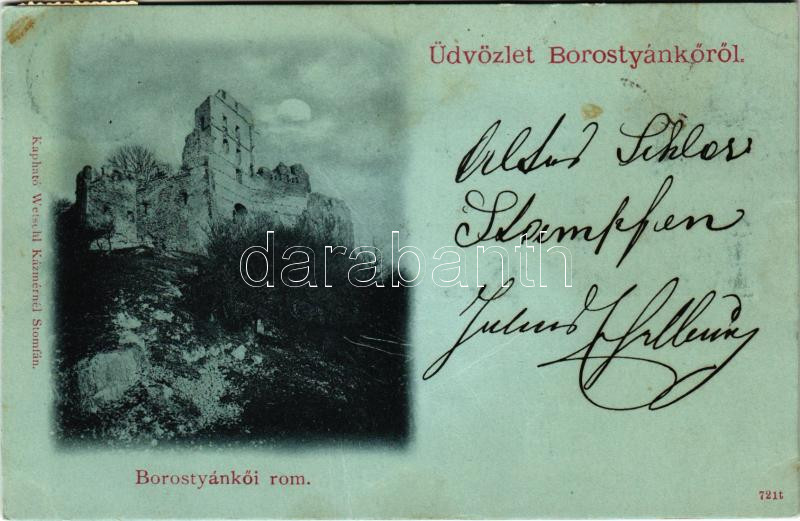 Üdvözlet Borostyánkőről.
Altes Schloss
Stampfen
Julius
Kapható Wetschl Kázmérnél Stomfán.
darabanth
Borostyánkői rom.
721t